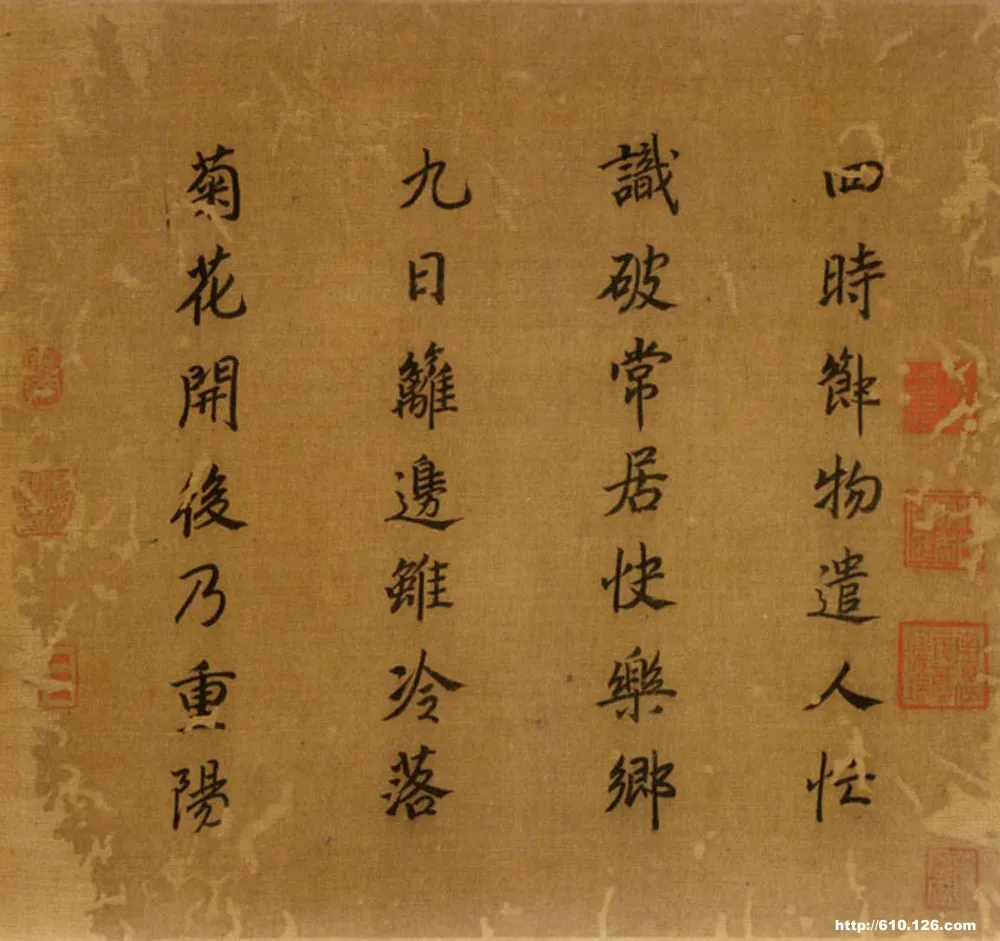 四時節物遣人忙
識破常居快樂鄉
九日籬邊雖冷落
菊花開後乃重陽
http://610.126.com